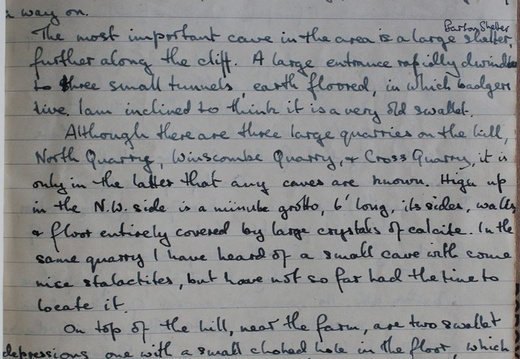 a way on.
Barton Shelter
The most important cave in the area is a large shelter,
further along the cliff. A large entrance rapidly dwindles
to three small tunnels, earth floored, in which badgers
live. I am inclined to think it is a very old swallet.
Although there are three large quarries on the hill,
North Quarry, Winscombe Quarry, & Cross Quarry, it is
only in the latter that any caves are known. High up
in the N.W. side is a minute grotto, 6' long, its sides, walls,
& floor entirely covered by large crystals of calcite. In the
same quarry I have heard of a small cave with some
nice stalactites, but have not so far had the time to
locate it.
On top of the hill, near the farm, are two swallet
depressions one with a small choked hole in the floor which